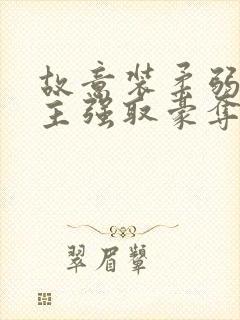 故意装柔弱
主强取豪夺
翠眉颦